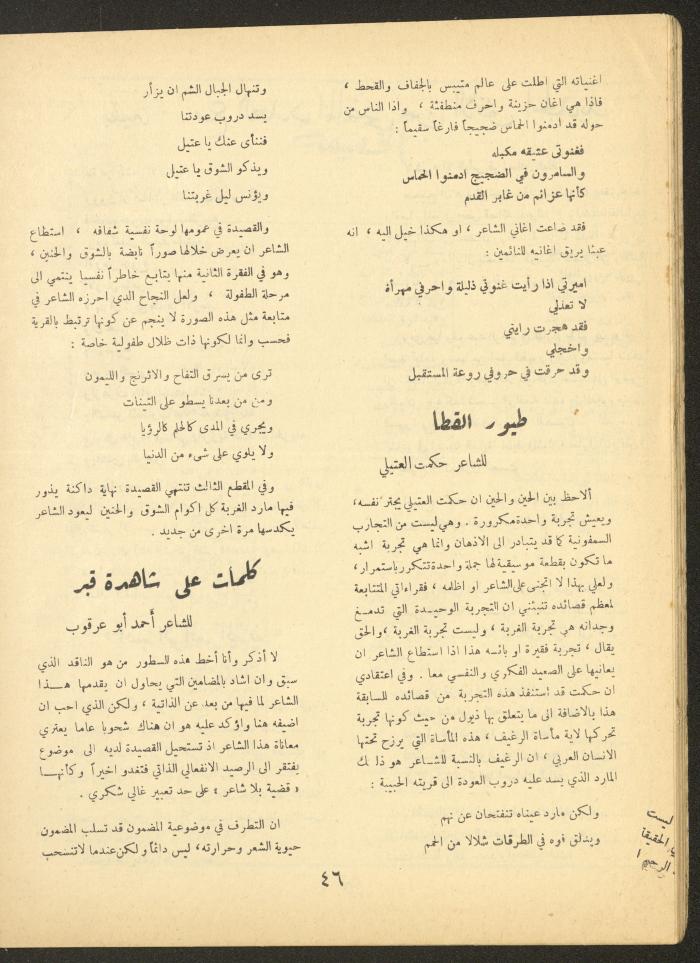 اغنياته التي اطلت على عالم متيبس بالجفاف والقحط ،
فاذا هي اغان حزينة واحرف منطفئة ، واذا الناس من
حوله قد ادمنوا الحماس ضجيجاً فارغاً سقيماً :
فغنوتى عتيقه مكبله
والسامرون في الضجيج ادمنوا الحماس
كأنها عزائم من غابر القدم
فقد ضاعت اغاني الشاعر ، او هكذا خيل اليه ، انه
عبثا يريق اغانيه للنائمين :
اميرتي اذا رأيت غنوتي ذليلة واحرفي مهرأة
لا تعذلي
فقد هجرت رايتي
واخجلي
وقد حرقت في حروفي روعة المستقبل
طيور القطا
للشاعر حكمت العتيلي
ألاحظ بين الحين والحين ان حكمت العتيلي يجتر نفسه،
ويعيش تجربة واحدة مكرورة . وهي ليست من التجارب
السمفونية كما قد يتبادر الى الاذهان وانما هي تجربة اشبه
ما تكون بقطعة موسيقية لها جملة واحدة تتكرر باستمرار،
ولعلي بهذا لا اتجنى على الشاعر او اظلمه ، فقراءاتي المتتابعة
لمعظم قصائده تنبئني ان التجربة الوحيدة التي تدمغ
وجدانه هي تجربة الغربة ، وليست تجربة الغربة ، والحق
يقال ، تجربة فقيرة او بائسه هذا اذا استطاع الشاعر ان
يعانيها على الصعيد الفكري والنفسي معا . وفي اعتقادي
ان حكمت قد استنفذ هذه التجربة من قصائده للسابقة
هذا بالاضافة الى ما يتعلق بها ذيول من حيث كونها تجربة
تحركها لاية مأساة الرغيف ، هذه المأساة التي يرزح تحتها
الانسان العربي ، ان الرغيف بالنسبة للشاعر هو ذلك
المارد الذي يسد عليه دروب العودة الى قريته الحبيبة :
ولكن مارد عيناه تنفتحان عن نهم
ويدلق فوه في الطرقات شلالا من الحمم
وتنهال الجبال الشم ان يزأر
يسد دروب عودتنا
فننأى عنك يا عتيل
ويذكو الشوق يا عتيل
ويؤنس ليل غربتنا
والقصيدة في عمومها لوحة نفسية شفافه ، استطاع
الشاعر ان يعرض خلالها صوراً نابضة بالشوق والحنين ،
وهو في الفقرة الثانية منها يتابع خاطراً نفسيا ينتمي الى
مرحلة الطفولة ، ولعل النجاح الذي احرزه الشاعر في
متابعة مثل هذه الصورة لا ينجم عن كونها ترتبط بالقرية
فحسب وانما لكونها ذات ظلال طفولية خاصة :
ترى من يسرق التفاح والاترنج والليمون
ومن من بعدنا يسطو على التينات
ويجري في المدى كالحلم كالرؤيا
ولا يلوي على شىء من الدنيا
وفي المقطع الثالث تنتهي القصيدة نهاية داكنة يذور
فيها مارد الغربة كل اكوام الشوق والحنين ليعود الشاعر
يكدسها مرة اخرى من جديد .
كلمات على شاهدة قبر
للشاعر أحمد أبو عرقوب
لا أذكر وأنا أخط هذه السطور من هو الناقد الذي
سبق وان اشاد بالمضامين التي يحاول ان يقدمها هذا
الشاعر لما فيها من بعد عن الذاتية ، ولكن الذي احب ان
اضيفه هنا واؤكد عليه هو ان هناك شحوبا عاما يعتري
معاناة هذا الشاعر اذ تستحيل القصيدة لديه الى موضوع
يفتقر الى الرصيد الانفعالي الذاتي فتغدو اخيراً وكأنها
« قضية بلا شاعر » على حد تعبير غالي شكري .
ان التطرف في موضوعية المضمون قد تسلب المضمون
حيوية الشعر وحرارته، ليس دائماً ولكن عندما لا تنسحب
٤٦
ليست
الحقيقا